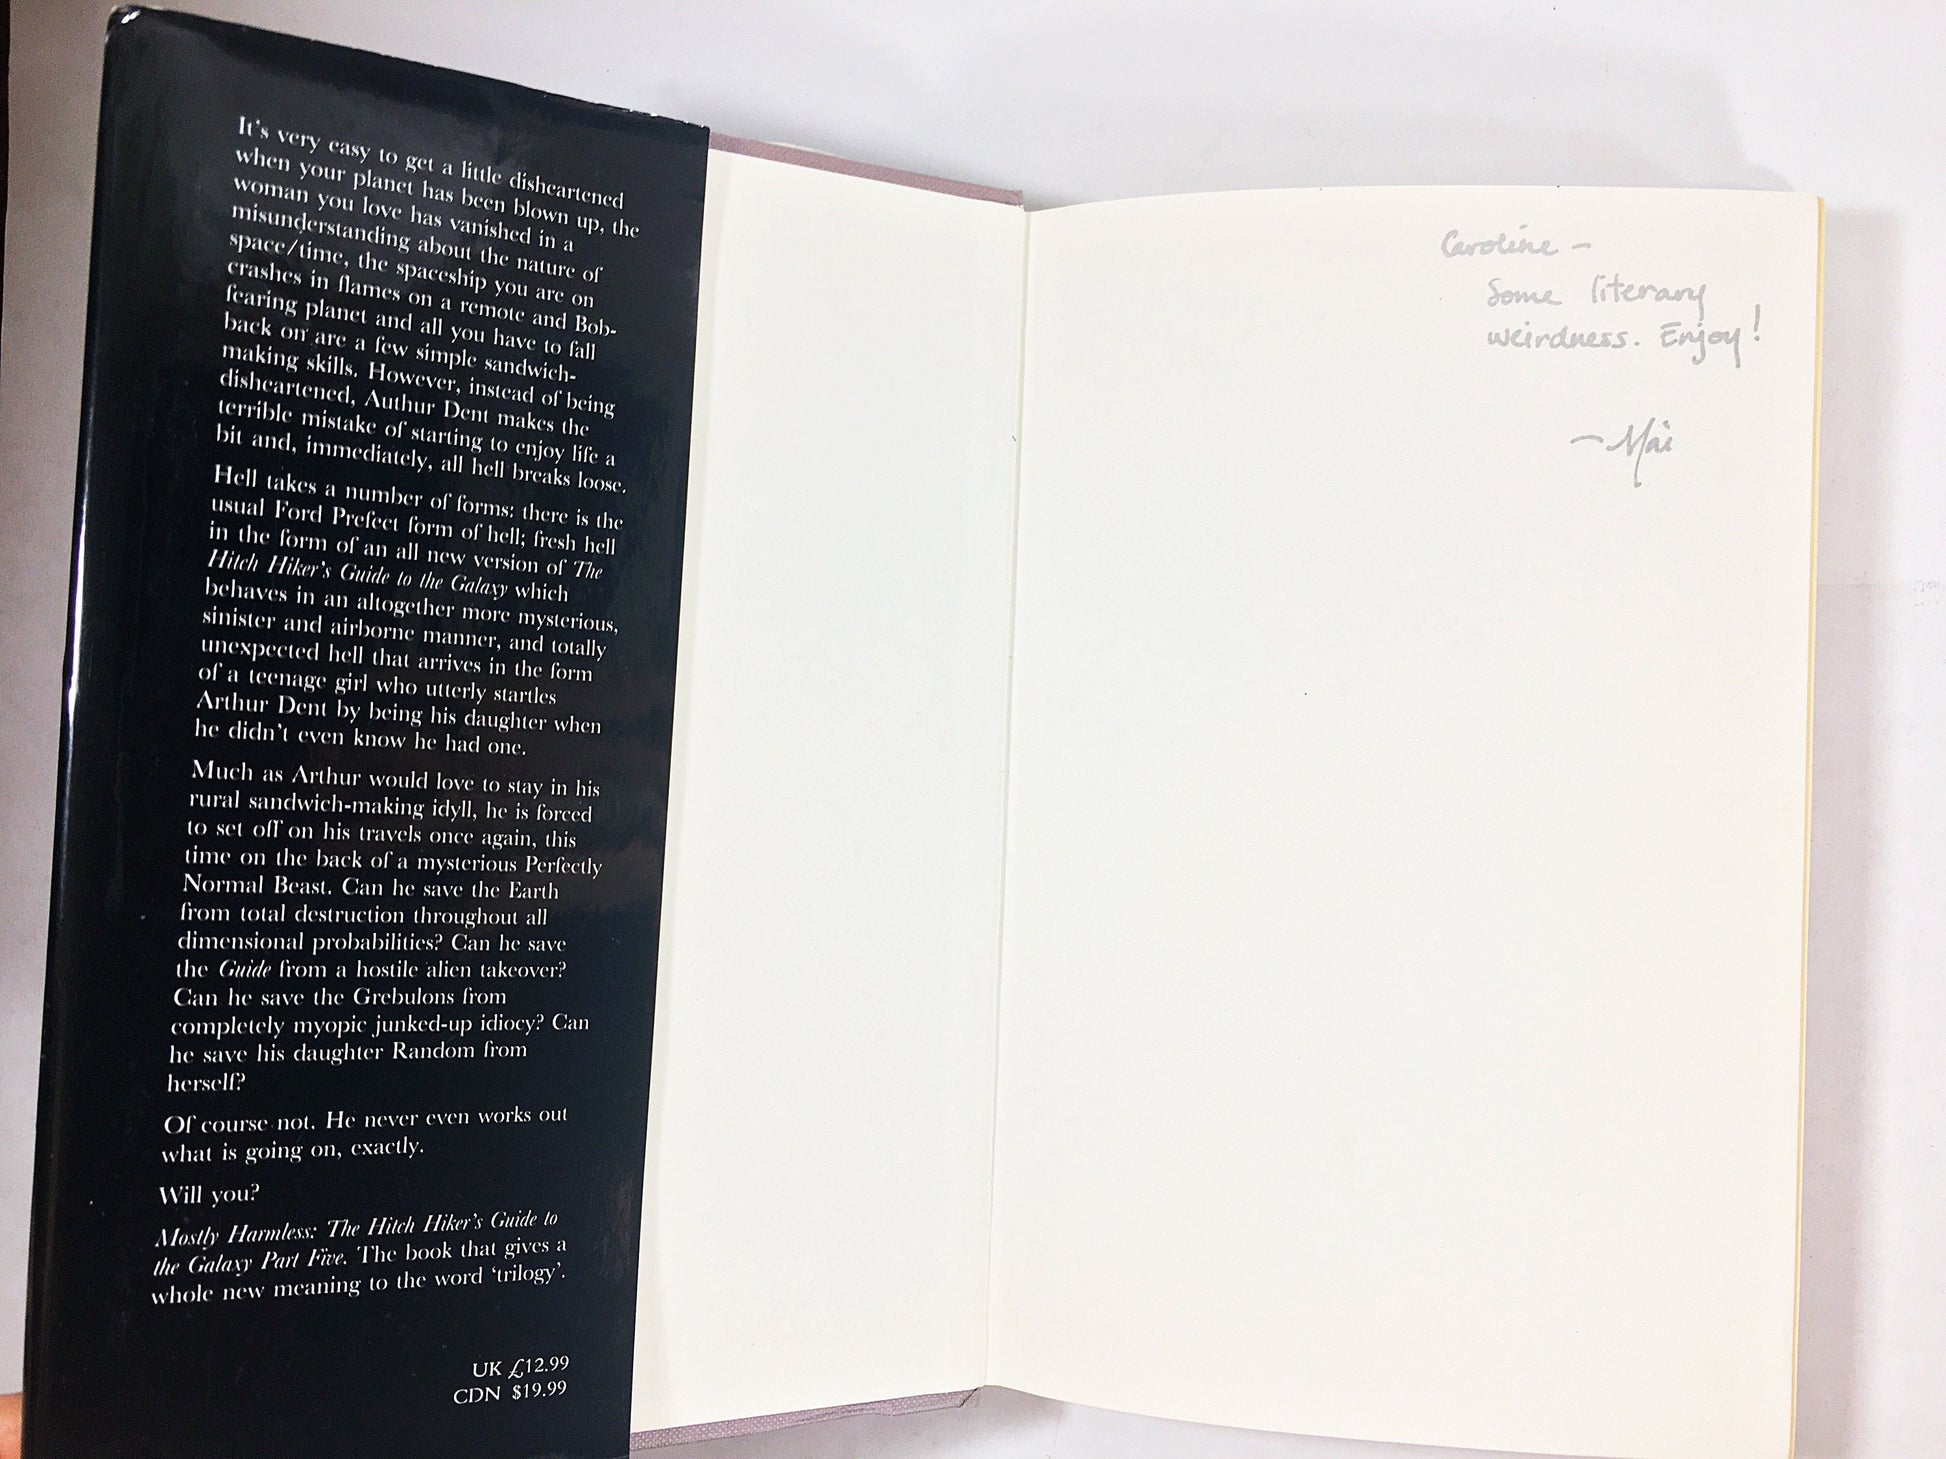 It's very easy to get a little disheartened
when your planet has been blown up, the
woman you love has vanished in a
misunderstanding about the nature of
space/time, the spaceship you are on
crashes in flames on a remote and Bob-
fearing planet and all you have to fall
back on are a few simple sandwich-
making skills. However, instead of being
disheartened, Authur Dent makes the
terrible mistake of starting to enjoy life a
bit and, immediately, all hell breaks loose.
Hell takes a number of forms: there is the
usual Ford Prefect form of hell; fresh hell
in the form of an all new version of The
Hitch Hiker's Guide to the Galaxy which
behaves in an altogether more mysterious,
sinister and airborne manner, and totally
unexpected hell that arrives in the form
of a teenage girl who utterly startles
Arthur Dent by being his daughter when
he didn't even know he had one.
Much as Arthur would love to stay in his
rural sandwich-making idyll, he is forced
to set off on his travels once again, this
time on the back of a mysterious Perfectly
Normal Beast. Can he save the Earth
from total destruction throughout all
dimensional probabilities? Can he save
the Guide from a hostile alien takeover?
Can he save the Grebulons from
completely myopic junked-up idiocy? Can
he save his daughter Random from
herself?
Of course not. He never even works out
what is going on, exactly.
Will you?
Mostly Harmless: The Hitch Hiker's Guide to
the Galaxy Part Five. The book that gives a
whole new meaning to the word 'trilogy'.
UK £12.99
CDN $19.99
Caroline –
Some literary
weirdness. Enjoy!
~Mai